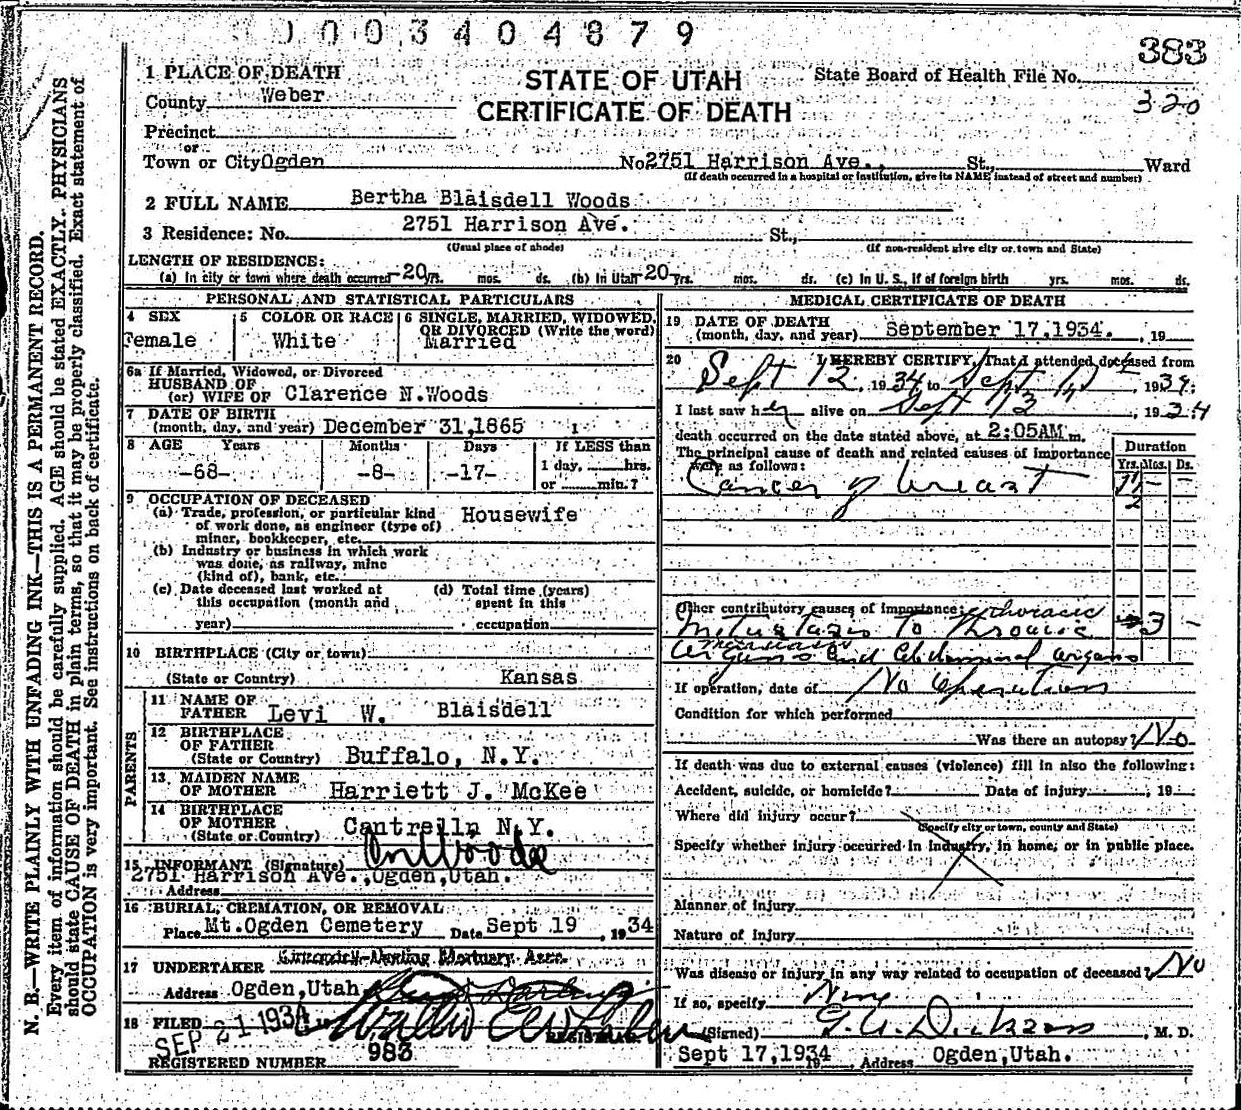 0003404879
383
1 PLACE OF DEATH
STATE OF UTAH
State Board of Health File No.
County Weber
CERTIFICATE OF DEATH
320
Precinct
or
Town or City Ogden No. 2751 Harrison Ave., St., Ward
(If death occurred in a hospital or institution, give its NAME instead of street and number)
2 FULL NAME Bertha Blaisdell Woods
3 Residence: No. 2751 Harrison Ave. St.,
(Usual place of abode) (If non-resident give city or town and State)
LENGTH OF RESIDENCE:
(a) In city or town where death occurred -20 yrs. mos. ds. (b) In Utah -20 yrs. mos. ds. (c) In U. S., if of foreign birth yrs. mos. ds.
PERSONAL AND STATISTICAL PARTICULARS
4 SEX 5 COLOR OR RACE 6 SINGLE, MARRIED, WIDOWED, OR DIVORCED (Write the word)
Female White Married
6a If Married, Widowed, or Divorced
HUSBAND OF
(or) WIFE OF Clarence N. Woods
7 DATE OF BIRTH
(month, day, and year) December 31, 1865
8 AGE Years Months Days If LESS than
-68- -8- -17- 1 day, hrs.
or min.?
9 OCCUPATION OF DECEASED
(a) Trade, profession, or particular kind Housewife
of work done, as engineer (type of)
miner, bookkeeper, etc.
(b) Industry or business in which work
was done, as railway, mine
(kind of), bank, etc.
(c) Date deceased last worked at (d) Total time (years)
this occupation (month and spent in this
year) occupation
10 BIRTHPLACE (City or town)
(State or Country) Kansas
PARENTS
11 NAME OF
FATHER Levi W. Blaisdell
12 BIRTHPLACE
OF FATHER
(State or Country) Buffalo, N.Y.
13. MAIDEN NAME
OF MOTHER Harriett J. McKee
14 BIRTHPLACE
OF MOTHER
(State or Country) N.Y.
15 INFORMANT (Signature)
2751 Harrison Ave., Ogden, Utah.
Address
16 BURIAL, CREMATION, OR REMOVAL
Place Mt. Ogden Cemetery Date Sept 19, 1934
17 UNDERTAKER
Address Ogden, Utah
18 FILED SEP 21 1934
REGISTRAR
REGISTERED NUMBER 983
MEDICAL CERTIFICATE OF DEATH
19 DATE OF DEATH
(month, day, and year) September 17, 1934. , 19
20 I HEREBY CERTIFY, That I attended deceased from
Sept 12 1934 to Sept 17 1934;
I last saw her alive on Sept 13, 1934
death occurred on the date stated above, at 2:05AM m.
The principal cause of death and related causes of importance
were as follows:
Duration
Yrs. Mos. Ds.
Cancer of breast
Other contributory causes of importance: thoracic
to
and Abdominal organs
3
If operation, date of No Operation
Condition for which performed
Was there an autopsy? No
If death was due to external causes (violence) fill in also the following:
Accident, suicide, or homicide? Date of injury , 19
Where did injury occur?
(Specify city or town, county and State)
Specify whether injury occurred in industry, in home, or in public place.
Manner of Injury
Nature of Injury
Was disease or injury in any way related to occupation of deceased? No
If so, specify None
(Signed) , M. D.
Sept 17, 1934 19 , Address Ogden, Utah.
N. B.—WRITE PLAINLY WITH UNFADING INK—THIS IS A PERMANENT RECORD.
Every item of information should be carefully supplied. AGE should be stated EXACTLY. PHYSICIANS
should state CAUSE OF DEATH in plain terms, so that it may be properly classified. Exact statement of
OCCUPATION is very important. See instructions on back of certificate.